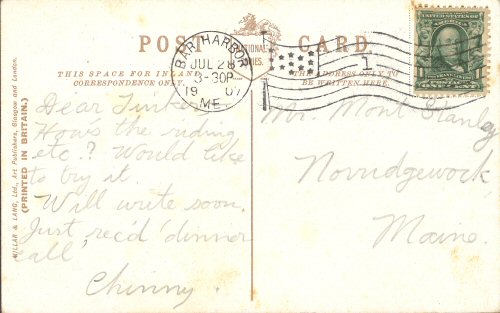 POST CARD
NATIONAL
SERIES.
THIS SPACE FOR INLAND
CORRESPONDENCE ONLY.
THE ADDRESS ONLY TO
BE WRITTEN HERE.
BAR HARBOR
JUL 28
3-30P
1907
ME.
1
UNITED STATES OF AMERICA
ONE CENT
MILLAR & LANG, Ltd., Art Publishers, Glasgow and London.
(PRINTED IN BRITAIN.)
Dear
How's the riding
etc.? Would like
to try it.
Will write soon.
Just rec'd 'dinner
all'
Chinny.
Mr. Mont Stanley
Norridgewock
Maine.